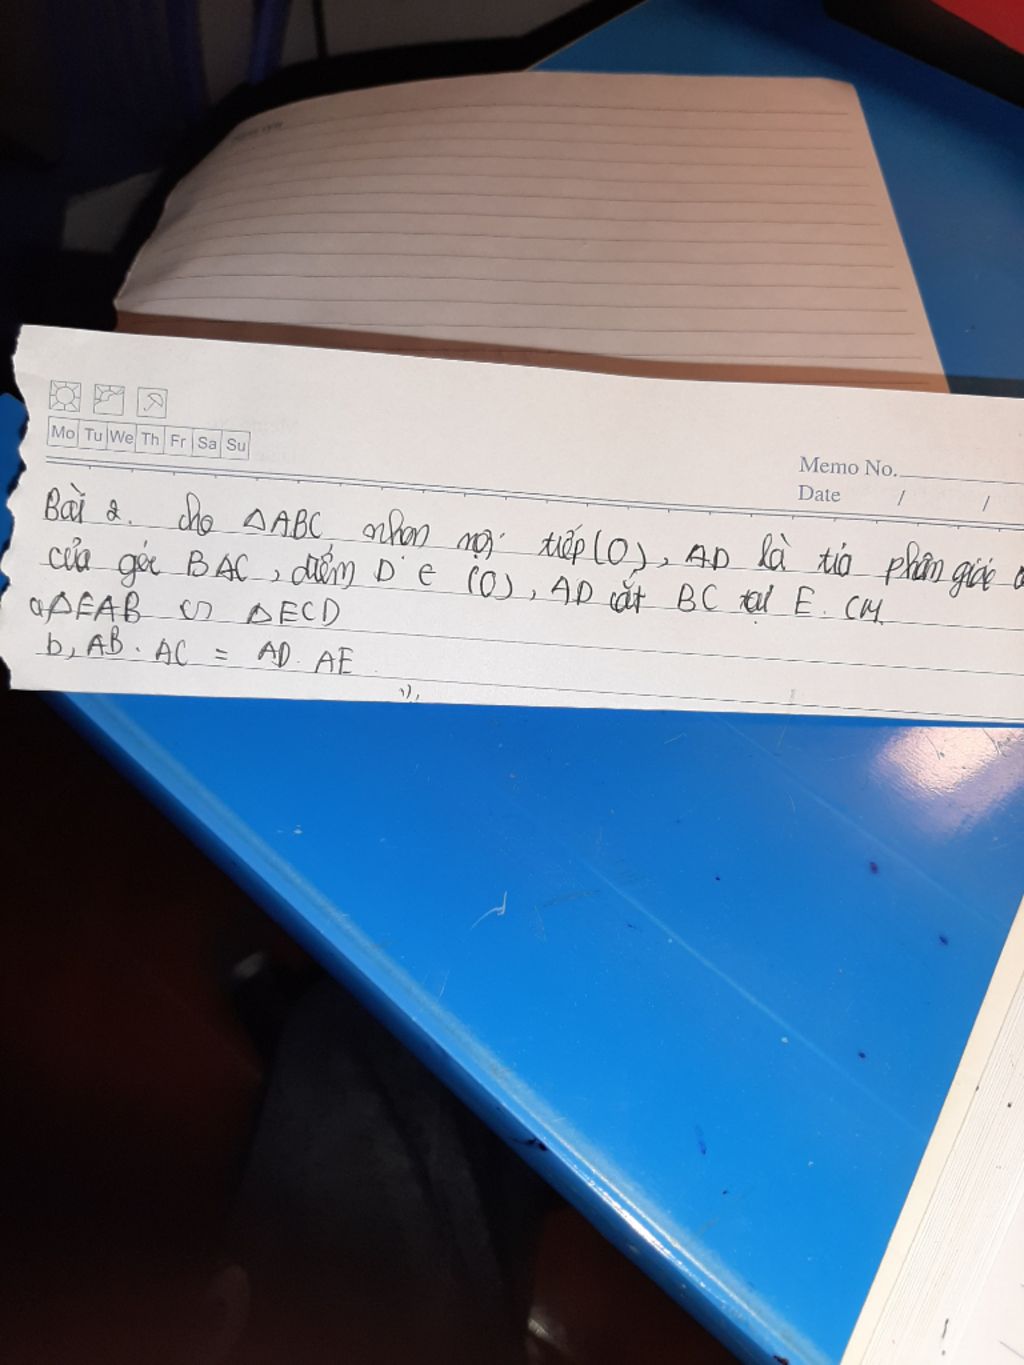 Mo Tu We Th Fr Sa Su
Memo No.
Date / /
Bài 2. cho △ABC nhọn nội tiếp (O), AD là tia phân giác
của góc BAC, điểm D ∈ (O), AD cắt BC tại E. CM
a, △EAB ∽ △ECD
b, AB. AC = AD. AE